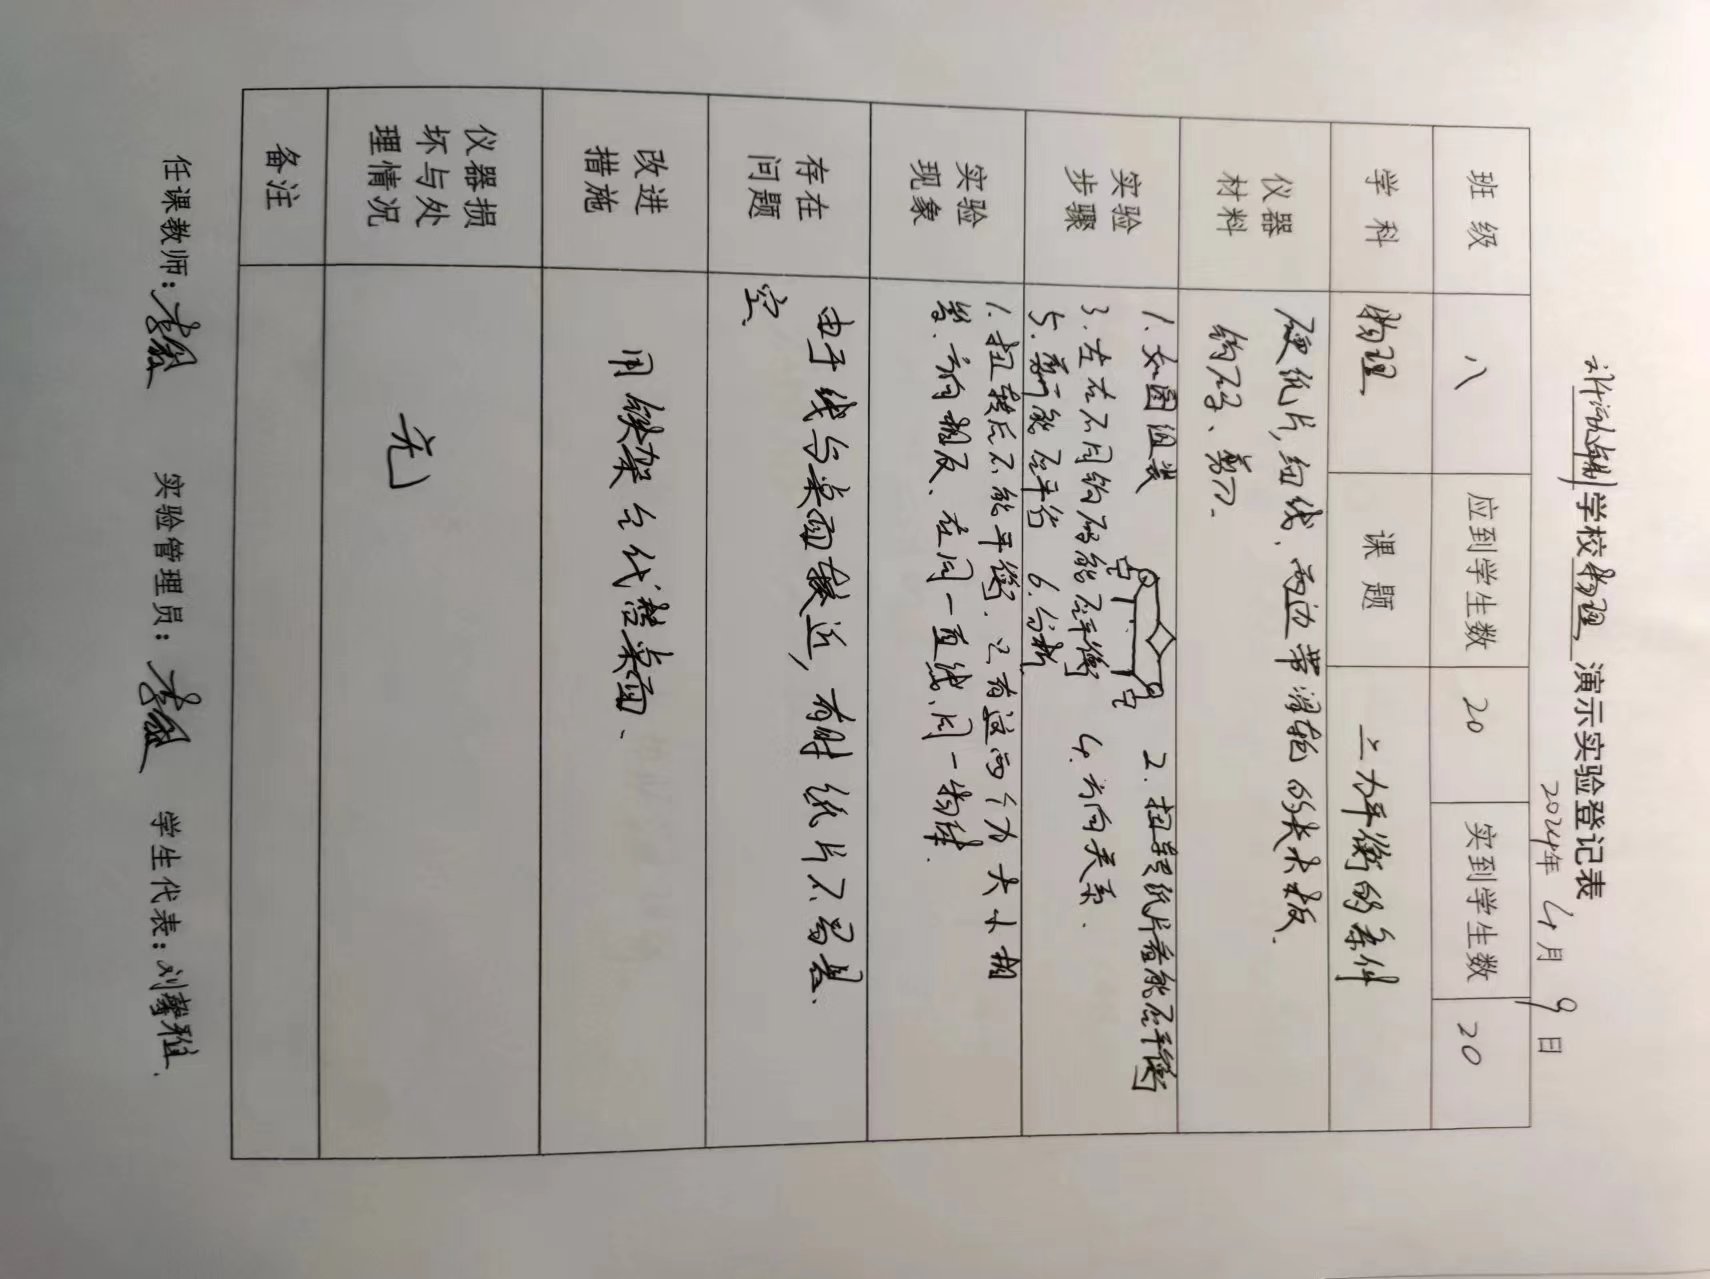 学校物理演示实验登记表
2024年4月9日
班级 八 应到学生数 20 实到学生数 20
学科 物理 课题 二力平衡的条件
仪器材料 硬纸片,细线、两边带滑轮的夹木板、
钩码、剪刀、
实验步骤 1.如图组装 2.扭转纸片看能否平衡
3.左右不同钩码能否平衡 4.方向关系.
5.剪断能否平衡 6.分析
实验现象 1.扭转后不能平衡.2.有这两个力大小相
等、方向相反、在同一直线、同一物体.
存在问题 由于线与桌面接近,有时纸片不易悬
空、
改进措施 用铁架台代替桌面、
仪器损坏与处理情况 无
备注
任课教师: 实验管理员: 学生代表:刘馨雅